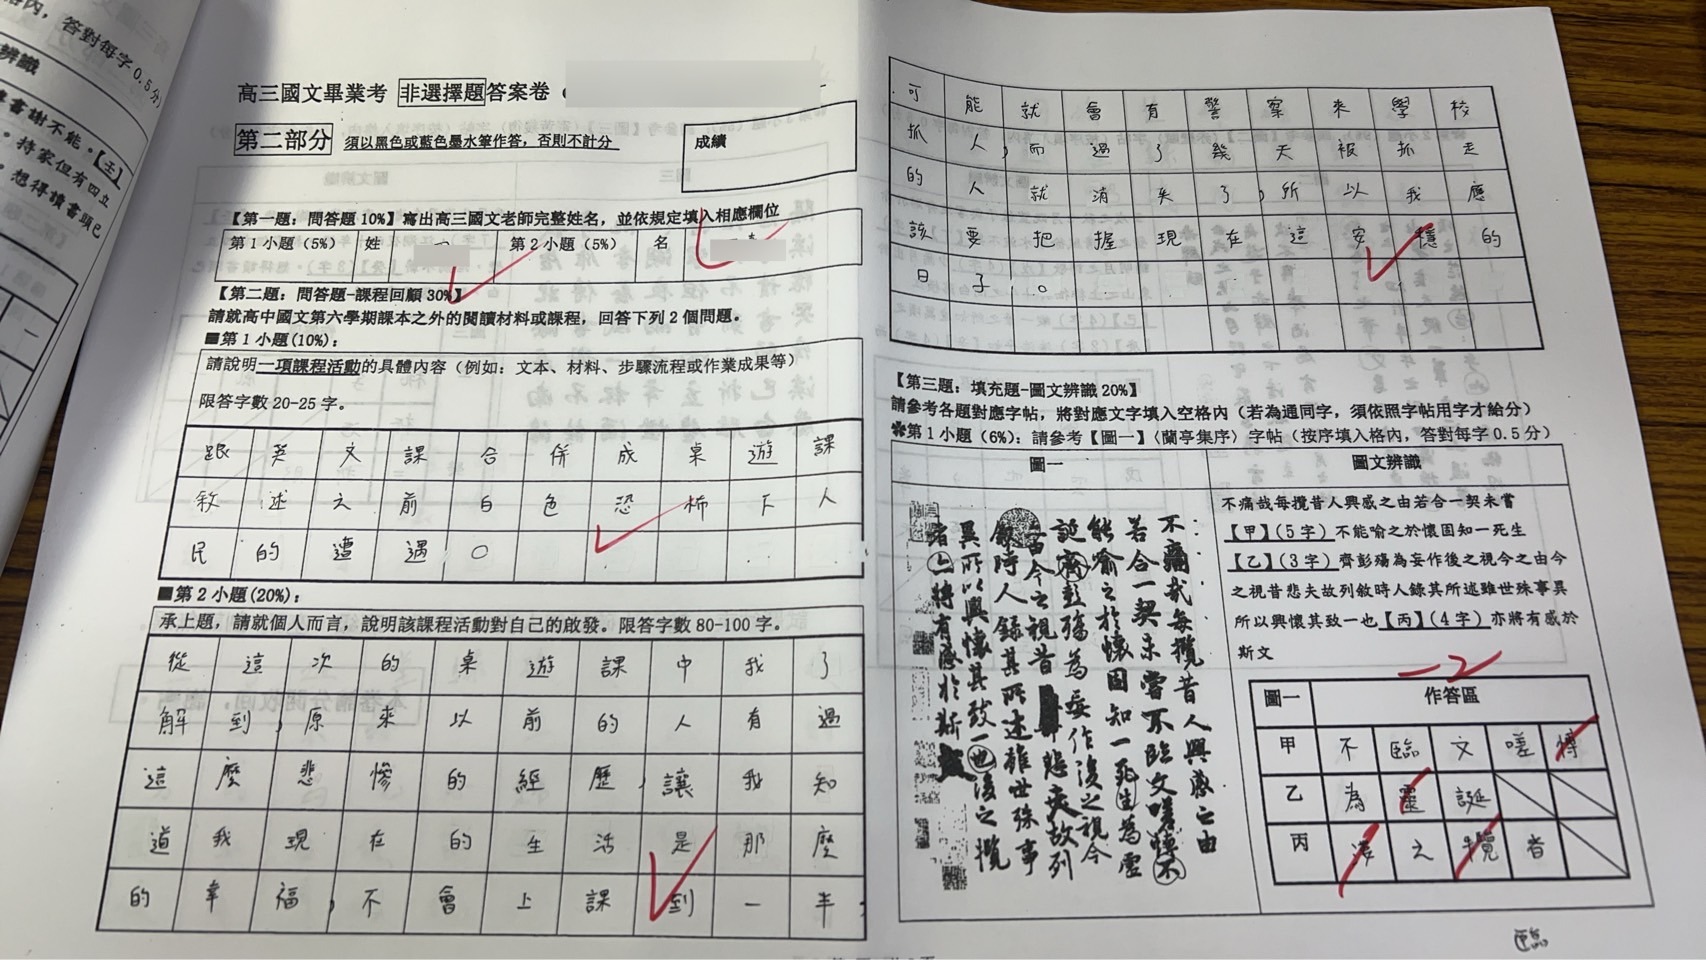 格內，答對每字0.5分）
辨識
書謝不能。【壬】
持家但有四立
想得讀書頭已
高三國文畢業考 非選擇題答案卷
第二部分 須以黑色或藍色墨水筆作答，否則不計分
成績
【第一題：問答題10%】寫出高三國文老師完整姓名，並依規定填入相應欄位
第1小題（5%） 姓 第2小題（5%） 名
【第二題：問答題-課程回顧30%】
請就高中國文第六學期課本之外的閱讀材料或課程，回答下列2個問題。
■第1小題(10%)：
請說明一項課程活動的具體內容（例如：文本、材料、步驟流程或作業成果等）
限答字數20-25字。
跟英文課合併成桌遊課
敘述之前白色恐怖下人
民的遭遇。
■第2小題(20%)：
承上題，請就個人而言，說明該課程活動對自己的啟發。限答字數80-100字。
從這次的桌遊課中我了
解到，原來以前的人有過
這麼悲慘的經歷，讓我知
道我現在的生活是那麼
的幸福，不會上課到一半，
可能就會有警察來學校
抓人，而過了幾天被抓走
的人就消失了，所以我應
該要把握現在這安穩的
日子。
【第三題：填充題-圖文辨識20%】
請參考各題對應字帖，將對應文字填入空格內（若為通同字，須依照字帖用字才給分）
✽第1小題（6%）：請參考【圖一】〈蘭亭集序〉字帖（按序填入格內，答對每字0.5分）
圖一 圖文辨識
不痛哉每攬昔人興感之由
若合一契未嘗不臨文嗟悼不
能喻之於懷固知一死生為虛
誕齊彭殤為妄作後之視今
由今之視昔悲夫故列
敘時人錄其所述雖世殊事
異所以興懷其致一也後之攬
者亦將有感於斯文
不痛哉每攬昔人興感之由若合一契未嘗
【甲】(5字)不能喻之於懷固知一死生
【乙】(3字)齊彭殤為妄作後之視今之由今
之視昔悲夫故列敘時人錄其所述雖世殊事異
所以興懷其致一也【丙】(4字)亦將有感於
斯文
-2
圖一 作答區
甲 不臨文嗟慱
乙 為靈誕
丙 後之攬者
臨